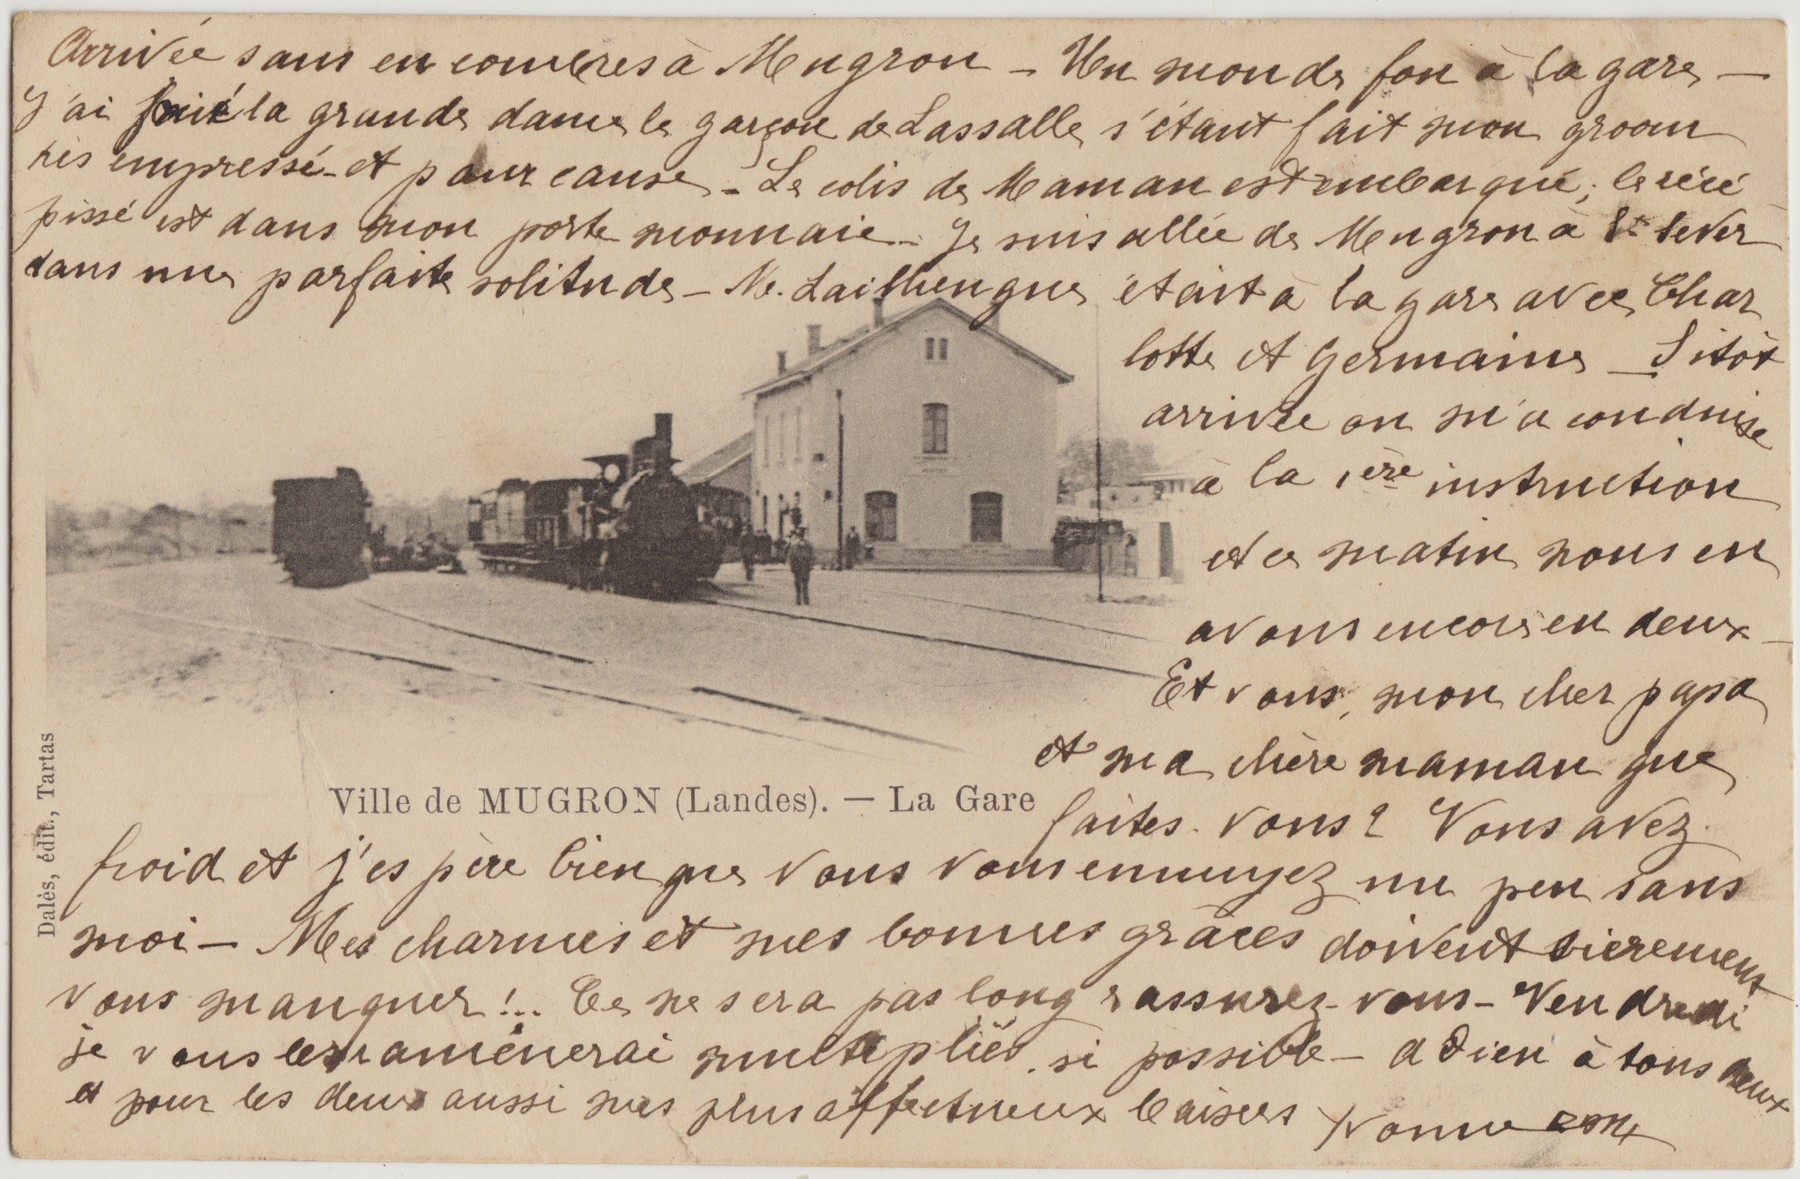 Arrivée sans encombres à Mugron — Un monde fou à la gare —
J'ai fait la grande dame le garçon de Lassalle s'étant fait mon groom
très empressé - et pour cause - Le colis de Maman est embarqué, le récé-
pissé est dans mon porte monnaie - Je suis allée de Mugron à St Sever
dans une parfaite solitude - Me. Lailhengue était à la gare avec Char
lotte et Germaine — Sitôt
arrivée on m'a conduise
à la 1ère instruction
et ce matin nous en
avons encore eu deux —
Et vous, mon cher papa
et ma chère maman que
faites-vous? Vous avez
froid et j'espère bien que vous vous ennuyez un peu sans
moi — Mes charmes et mes bonnes grâces doivent
vous manquer!.. Ce ne sera pas long rassurez-vous - Vendredi
je vous les ramènerai multipliés si possible — adieu à tous deux
et pour les deux aussi mes plus affectueux baisers Yvonne
Ville de MUGRON (Landes). — La Gare
Dalès, édit., Tartas